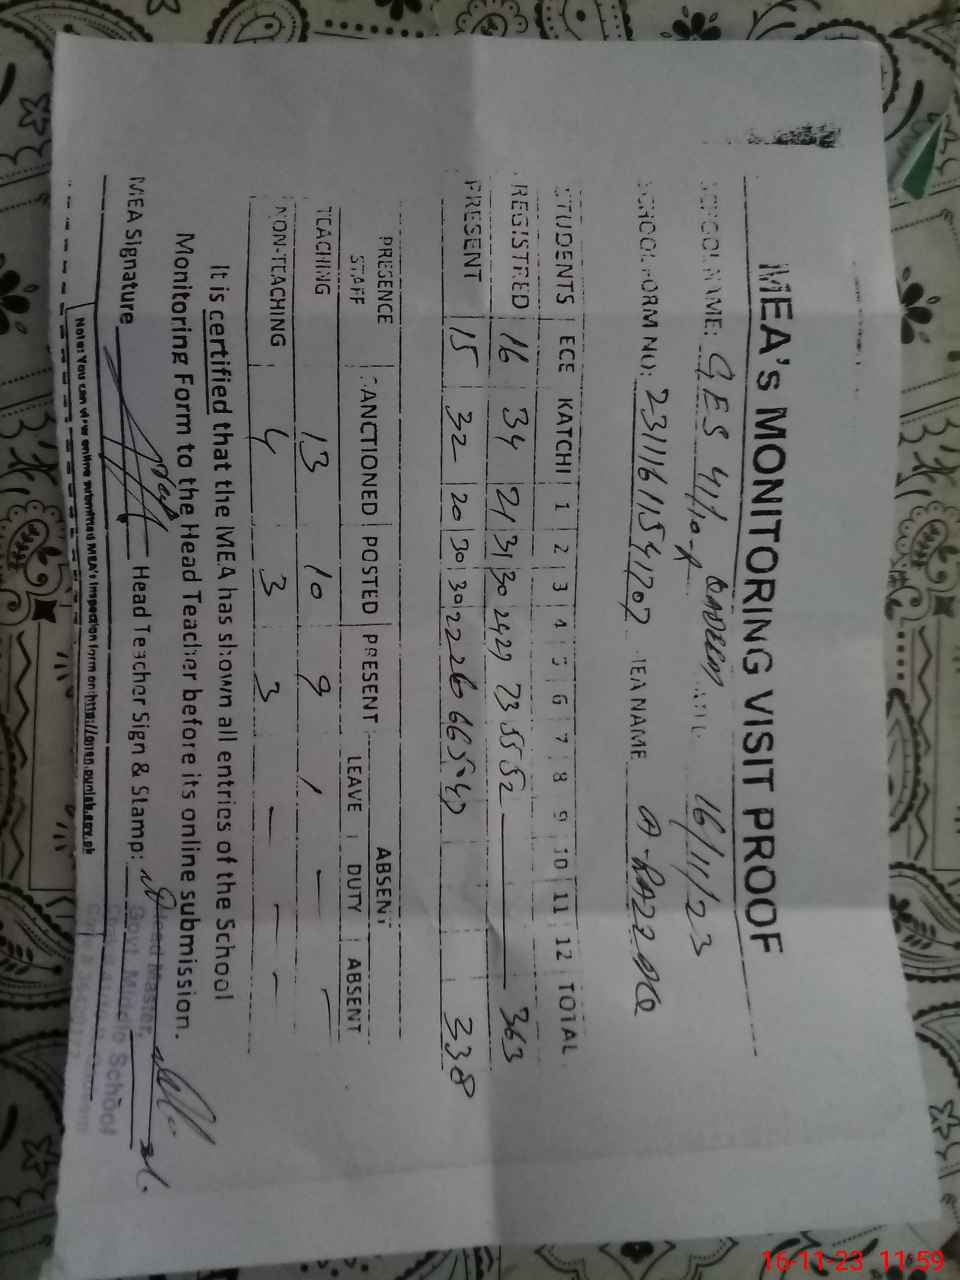 MEA's MONITORING VISIT PROOF
SCHOOL NAME: GES 41/10-R 16/11/23
SCHOOL FORM NO: MEA NAME A-RAZZAQ
STUDENTS ECE KATCHI 1 2 3 4 5 6 7 8 9 10 11 12 TOTAL
REGISTRED 16 34 21 31 30 24 29 73 55 52 — 363
PRESENT 15 32 20 30 30 22 26 66 50 47 338
PRESENCE ABSENT
STAFF SANCTIONED POSTED PRESENT LEAVE DUTY ABSENT
TEACHING 13 10 9 1 — —
NON-TEACHING 4 3 3 — — —
It is certified that the MEA has shown all entries of the School
Monitoring Form to the Head Teacher before its online submission.
MEA Signature Head Teacher Sign & Stamp:
Head Master
Govt. Middle School
Note: You can view online submitted MEA's Inspection form on:http://open.punjab.gov.pk
16-11-23 11:59